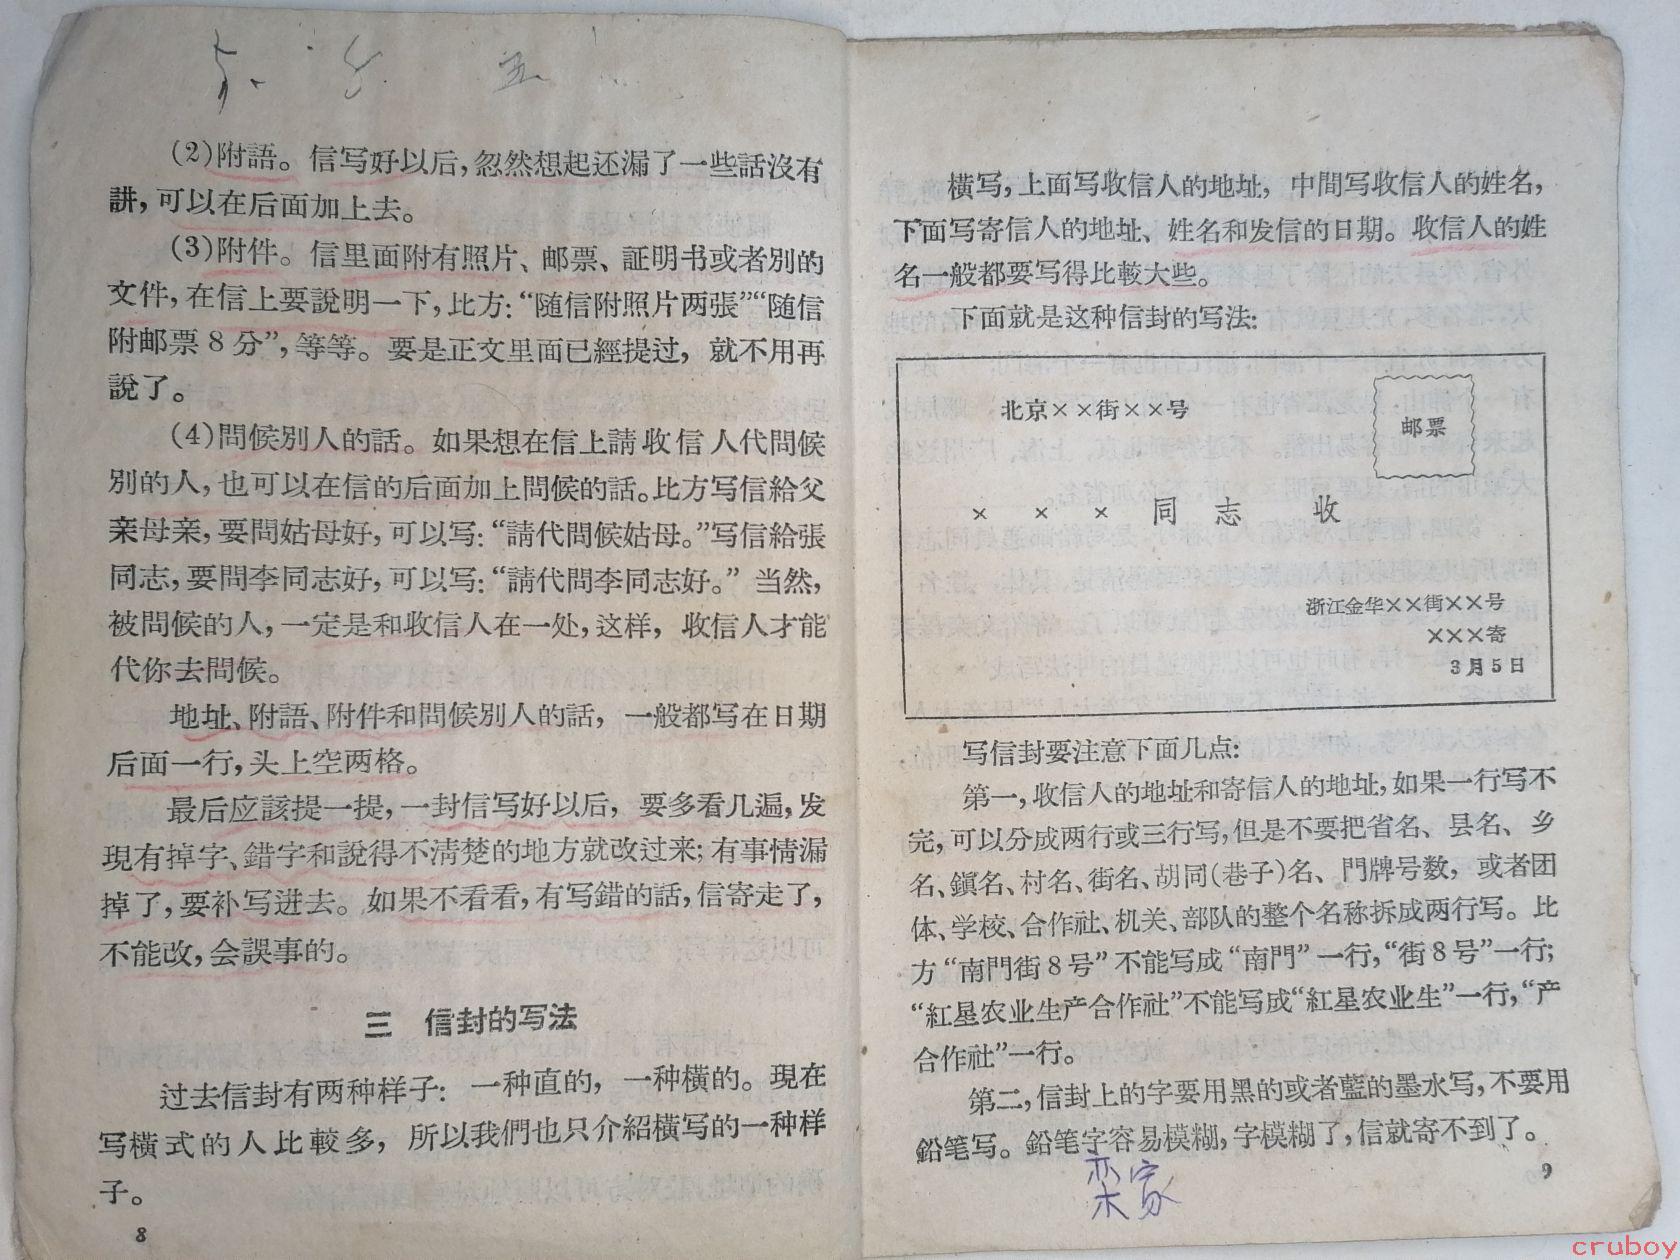 五
(2)附語。信写好以后,忽然想起还漏了一些話沒有
講,可以在后面加上去。
(3)附件。信里面附有照片、邮票、証明书或者別的
文件,在信上要說明一下,比方:“随信附照片两張”“随信
附邮票8分”,等等。要是正文里面已經提过,就不用再
說了。
(4)問候別人的話。如果想在信上請收信人代問候
別的人,也可以在信的后面加上問候的話。比方写信給父
亲母亲,要問姑母好,可以写:“請代問候姑母。”写信給張
同志,要問李同志好,可以写:“請代問李同志好。”当然,
被問候的人,一定是和收信人在一处,这样,收信人才能
代你去問候。
地址、附語、附件和問候別人的話,一般都写在日期
后面一行,头上空两格。
最后应該提一提,一封信写好以后,要多看几遍,发
現有掉字、錯字和說得不清楚的地方就改过来;有事情漏
掉了,要补写进去。如果不看看,有写錯的話,信寄走了,
不能改,会誤事的。
三 信封的写法
过去信封有两种样子:一种直的,一种橫的。現在
写橫式的人比較多,所以我們也只介紹橫写的一种样
子。
8
橫写,上面写收信人的地址,中間写收信人的姓名,
下面写寄信人的地址、姓名和发信的日期。收信人的姓
名一般都要写得比較大些。
下面就是这种信封的写法:
北京××街××号
邮票
×××同志 收
浙江金华××街××号
×××寄
3月5日
写信封要注意下面几点:
第一,收信人的地址和寄信人的地址,如果一行写不
完,可以分成两行或三行写,但是不要把省名、县名、乡
名、鎭名、村名、街名、胡同(巷子)名、門牌号数,或者团
体、学校、合作社、机关、部队的整个名称拆成两行写。比
方“南門街8号”不能写成“南門”一行,“街8号”一行;
“紅星农业生产合作社”不能写成“紅星农业生”一行,“产
合作社”一行。
第二,信封上的字要用黑的或者藍的墨水写,不要用
鉛笔写。鉛笔字容易模糊,字模糊了,信就寄不到了。
栾家
9
cruboy